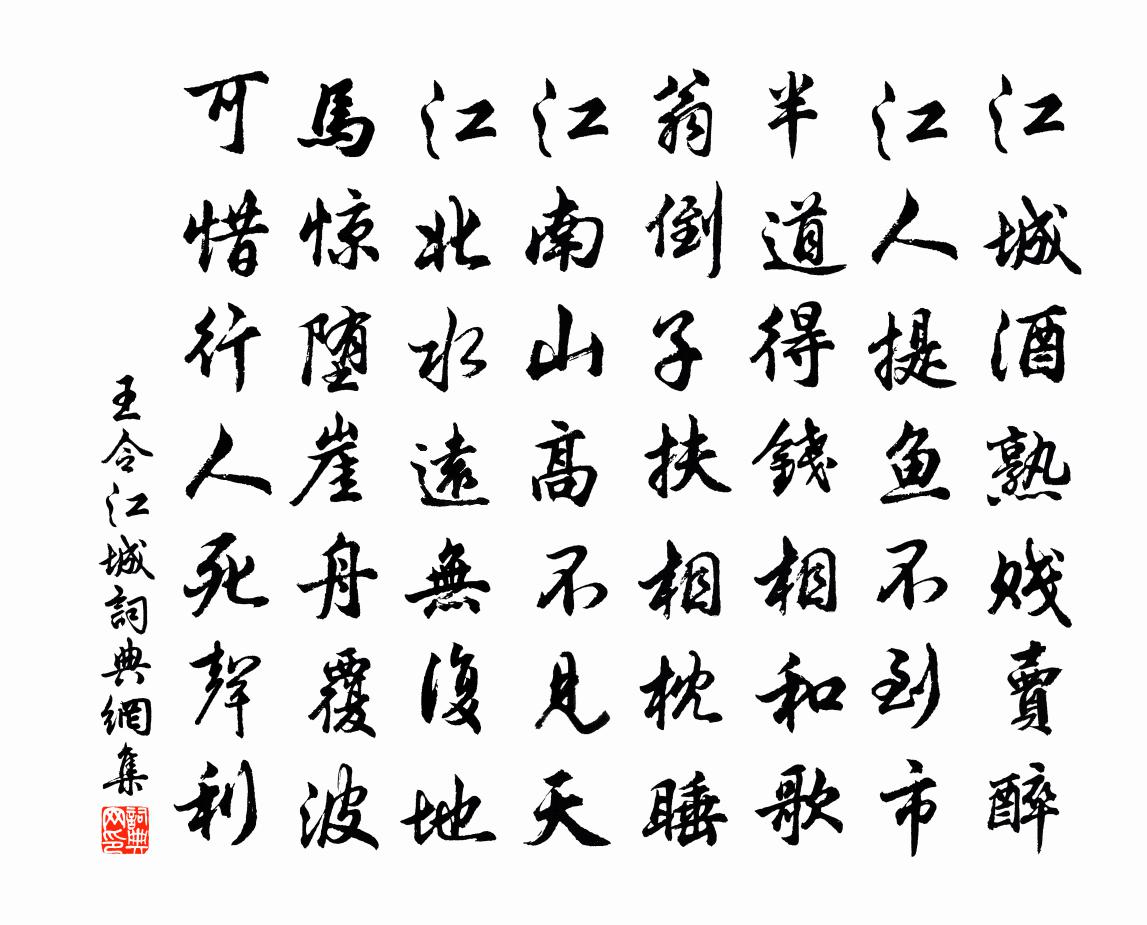 江城酒熟贱賣醉
江人提鱼不到市
半道得錢相和歌
翁倒子扶相枕睡
江南山高不見天
江北水遠無復地
馬惊墮崖舟覆波
可惜行人死聲利
王令江城詞典網集
詞典网印